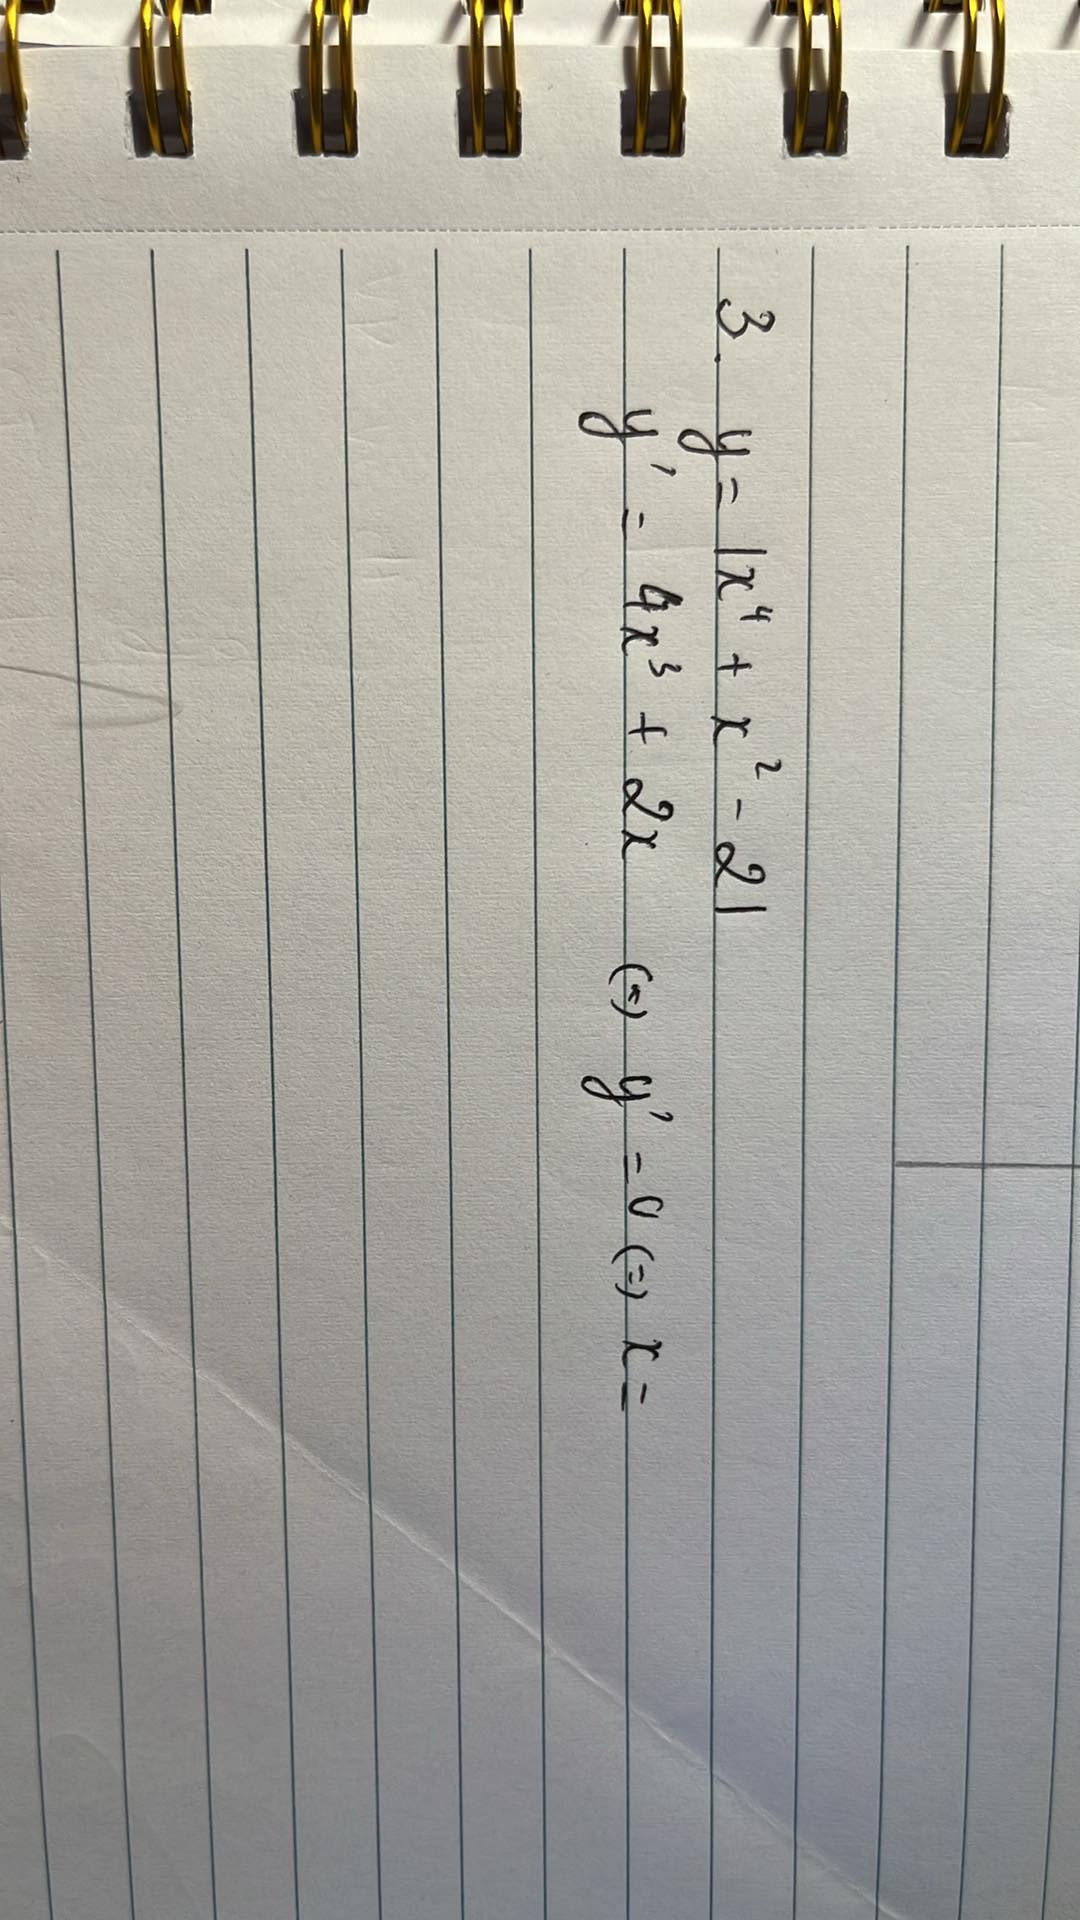 3. y = |x⁴ + x² - 2|
y' = 4x³ + 2x (=) y' = 0 (=) x =